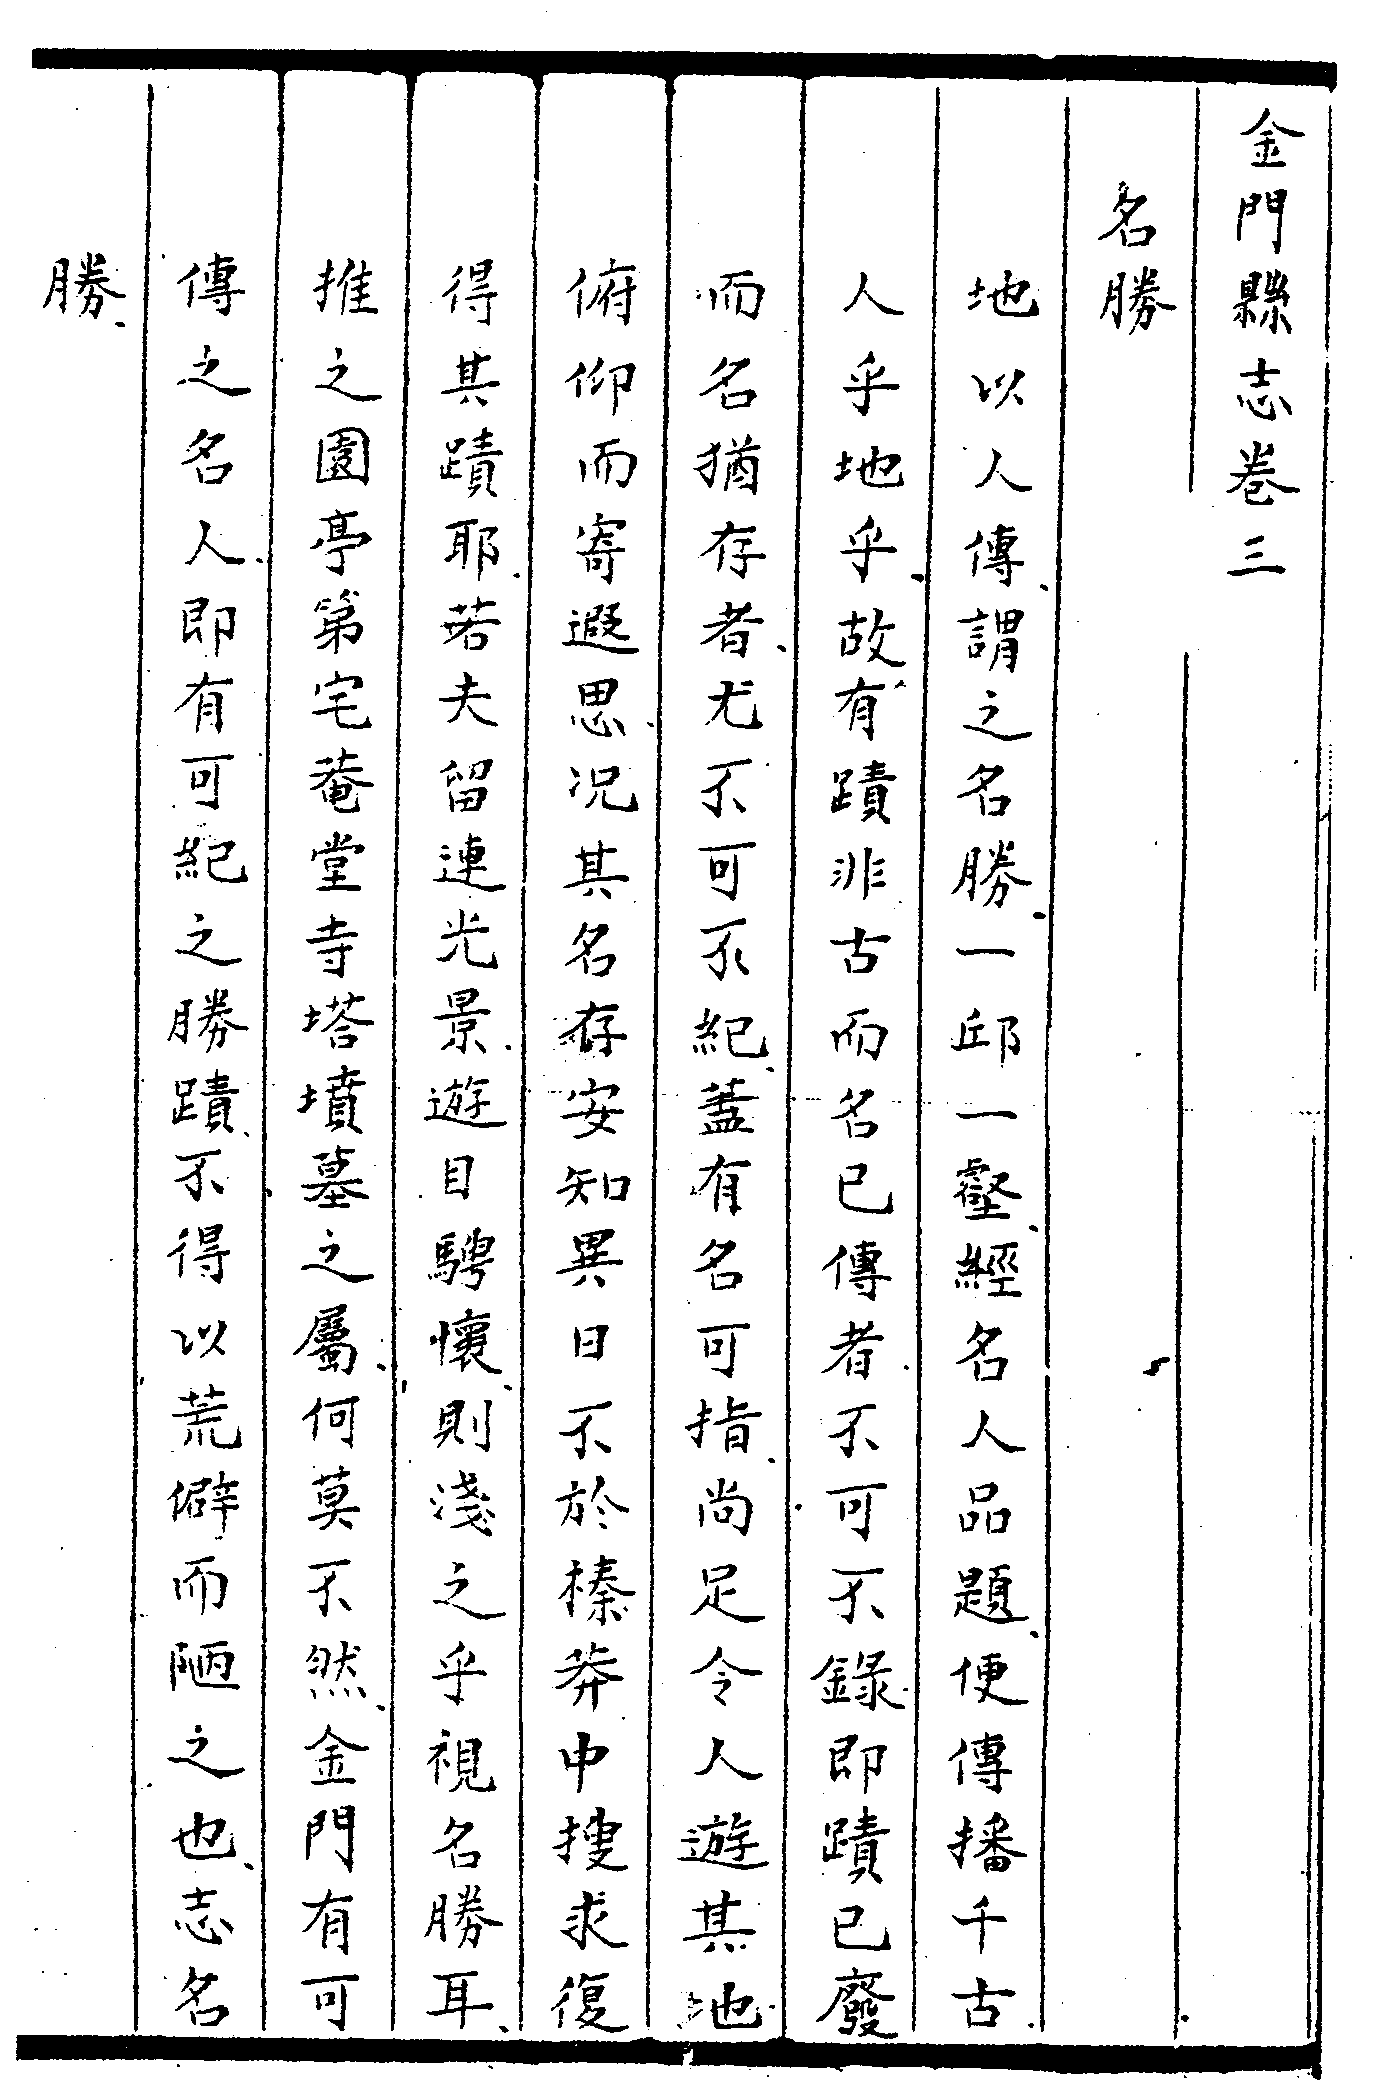 金門縣志卷三
名勝
地以人傳謂之名勝一邱一壑經名人品題便傳播千古
人乎地乎故有蹟非古而名已傳者不可不錄即蹟已廢
而名猶存者尤不可不紀蓋有名可指尚足令人遊其地
俯仰而寄遐思况其名存安知異日不於榛莽中搜求復
得其蹟耶若夫留連光景遊目騁懷則淺之乎視名勝耳
推之園亭第宅菴堂寺塔墳墓之屬何莫不然金門有可
傳之名人即有可紀之勝蹟不得以荒僻而陋之也志名
勝